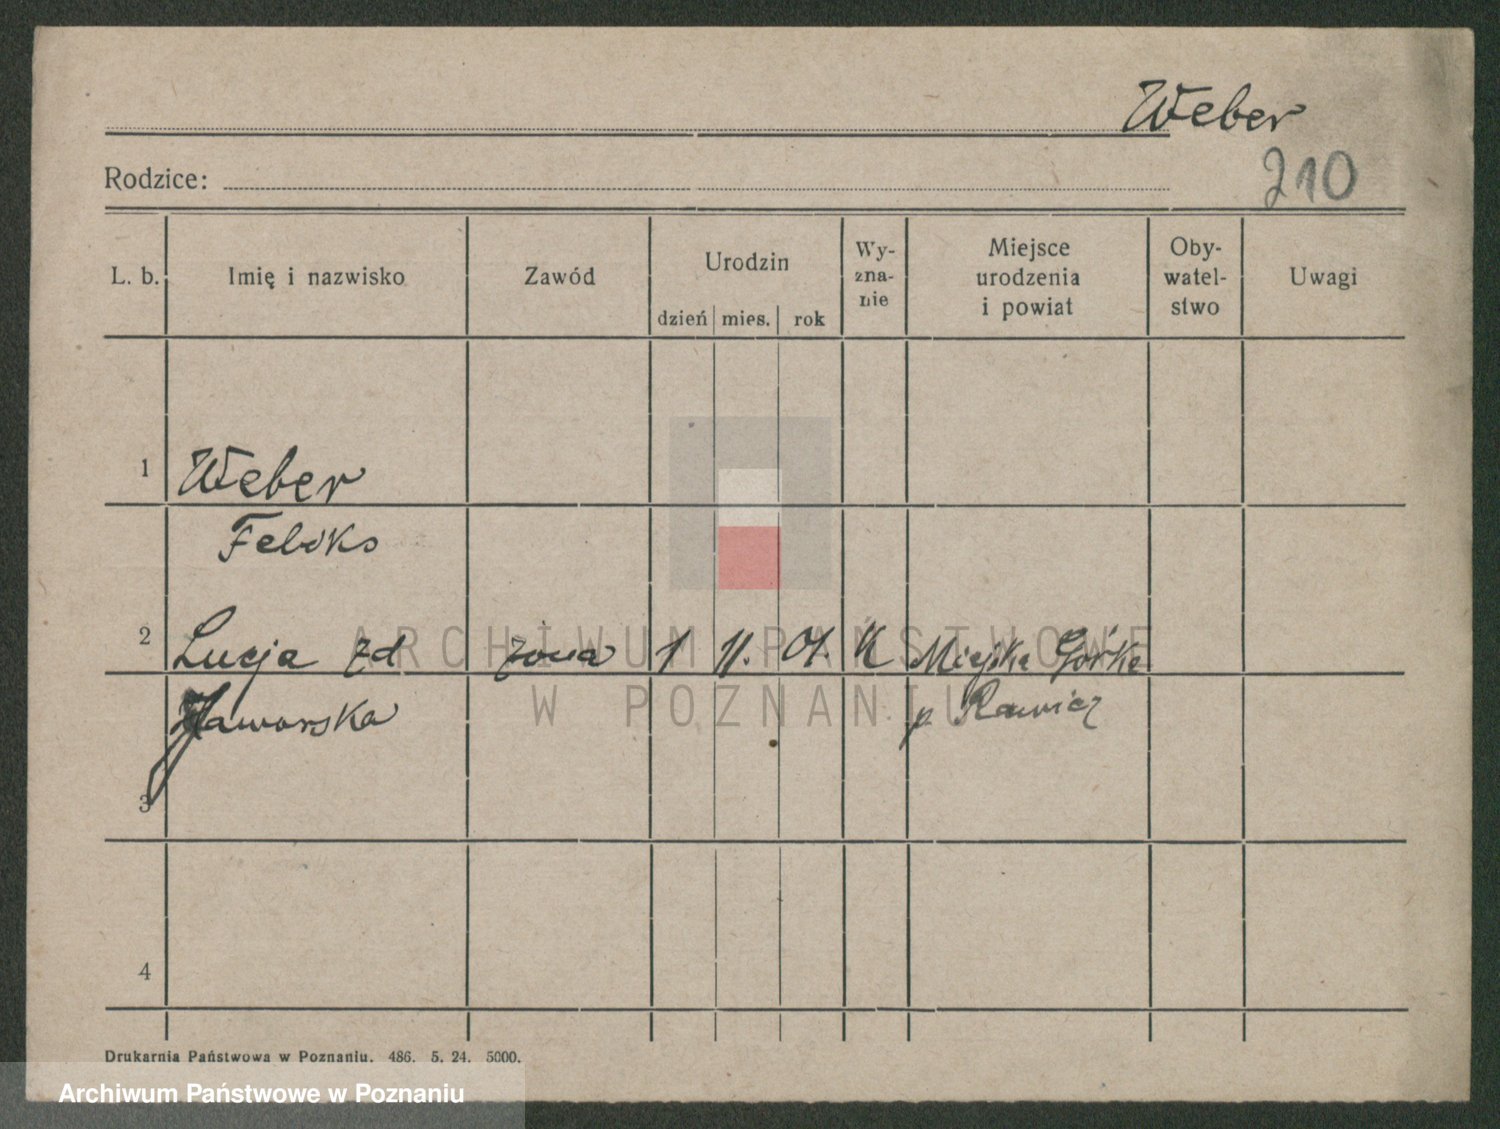 Weber
210
Rodzice:
L. b. Imię i nazwisko Zawód Urodzin dzień mies. rok Wy-zna-nie Miejsce urodzenia i powiat Oby-watel-stwo Uwagi
1 Weber
Feliks
2 Lucja zd żona 1 11. 01. K Miejska Górka
Jaworska p Rawicz
3
4
Drukarnia Państwowa w Poznaniu. 486. 5. 24. 5000.
ARCHIWUM PAŃSTWOWE
W POZNANIU
Archiwum Państwowe w Poznaniu